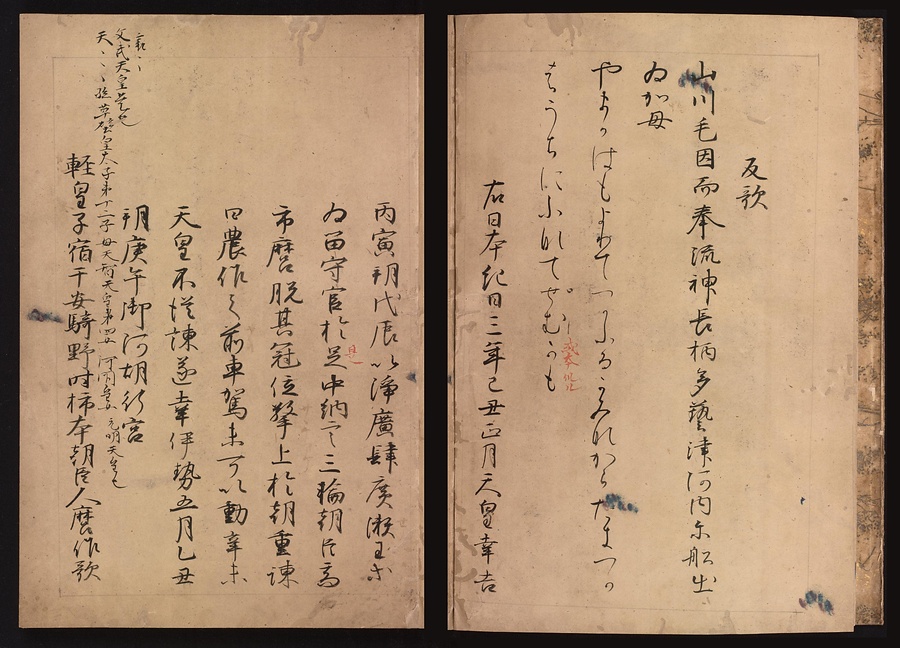 反歌
山川毛因而奉流神長柄多藝津河内尓船出
為加母
やまかはもよりてつかふるかみなからたきつか
はうちにふなてせむかも
或本
右日本紀曰三年己丑正月天皇幸吉
丙寅朔戊辰以浄廣肆廣瀬王等
為留守官於是中納言三輪朝臣高
是
市麿脱其冠位擎上於朝重諫
曰農作之前車駕未可以動辛未
天皇不従諫遂幸伊勢五月乙丑
朔庚午御阿胡行宮
軽皇子宿于安騎野時柿本朝臣人麿作歌
文武天皇是也
天、、、孫草壁皇太子第十二子母天智天皇第四女阿閇皇女元明天皇也